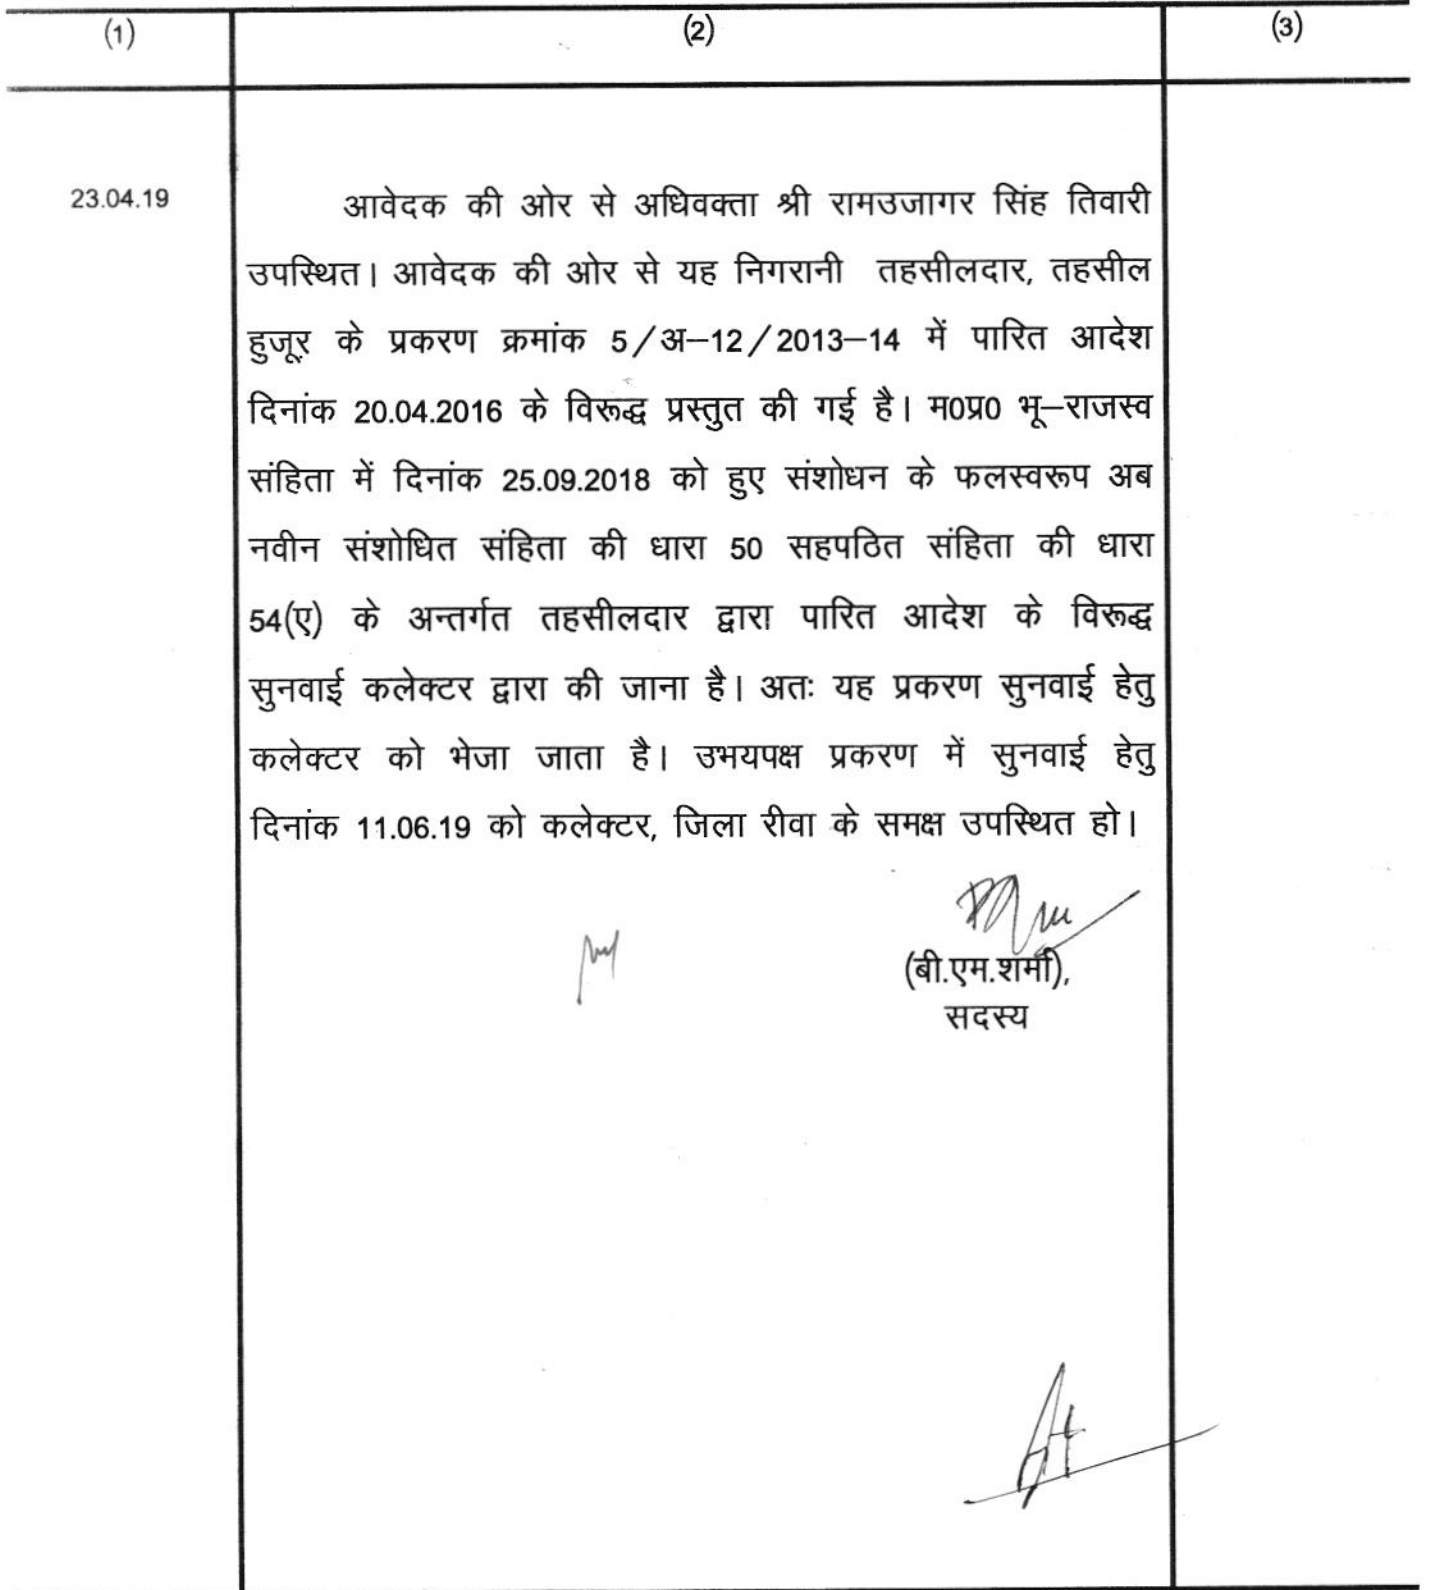 (1) (2) (3)
23.04.19 आवेदक की ओर से अधिवक्ता श्री रामउजागर सिंह तिवारी
उपस्थित। आवेदक की ओर से यह निगरानी तहसीलदार, तहसील
हुजूर के प्रकरण क्रमांक 5/अ—12/2013—14 में पारित आदेश
दिनांक 20.04.2016 के विरूद्ध प्रस्तुत की गई है। म0प्र0 भू—राजस्व
संहिता में दिनांक 25.09.2018 को हुए संशोधन के फलस्वरूप अब
नवीन संशोधित संहिता की धारा 50 सहपठित संहिता की धारा
54(ए) के अन्तर्गत तहसीलदार द्वारा पारित आदेश के विरूद्ध
सुनवाई कलेक्टर द्वारा की जाना है। अतः यह प्रकरण सुनवाई हेतु
कलेक्टर को भेजा जाता है। उभयपक्ष प्रकरण में सुनवाई हेतु
दिनांक 11.06.19 को कलेक्टर, जिला रीवा के समक्ष उपस्थित हो।
(बी.एम.शर्मा),
सदस्य